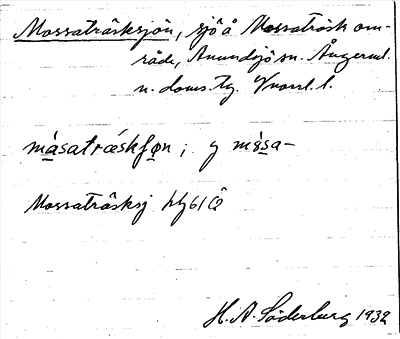 Mossaträsksjön, sjö å Mossaträsk om-
råde, Anundsjö sn. Ångerml.
n. doms. tg. Vnorrl. l.
måsatræskʃøn ; y måsa-
Mossaträsksj hly61 Ö
H. A. Söderberg 1932